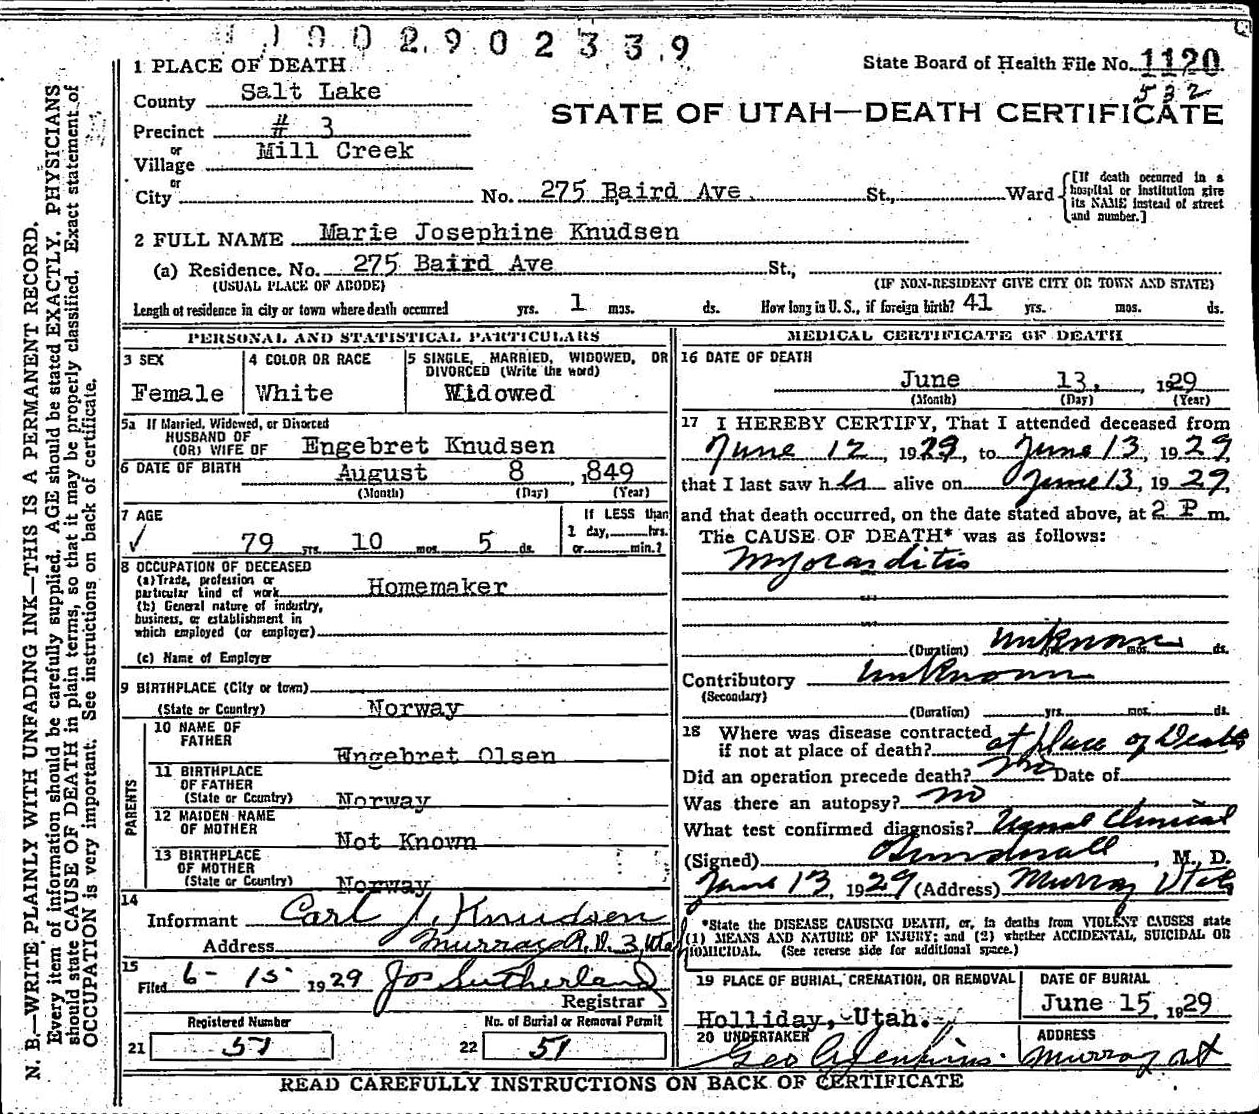 1002902339
State Board of Health File No. 1120
532
STATE OF UTAH—DEATH CERTIFICATE
1 PLACE OF DEATH
County Salt Lake
Precinct # 3
or
Village Mill Creek
or
City No. 275 Baird Ave St., Ward
[If death occurred in a
hospital or institution give
its NAME instead of street
and number.]
2 FULL NAME Marie Josephine Knudsen
(a) Residence. No. 275 Baird Ave St.,
(USUAL PLACE OF ABODE) (IF NON-RESIDENT GIVE CITY OR TOWN AND STATE)
Length of residence in city or town where death occurred yrs. 1 mos. ds. How long in U.S., if foreign birth? 41 yrs. mos. ds.
PERSONAL AND STATISTICAL PARTICULARS
3 SEX
Female
4 COLOR OR RACE
White
5 SINGLE, MARRIED, WIDOWED, OR
DIVORCED (Write the word)
Widowed
5a If Married, Widowed, or Divorced
HUSBAND OF
(OR) WIFE OF Engebret Knudsen
6 DATE OF BIRTH August 8 , 1849
(Month) (Day) (Year)
7 AGE
79 yrs. 10 mos. 5 ds.
If LESS than
1 day, hrs.
or min.?
8 OCCUPATION OF DECEASED
(a) Trade, profession or
particular kind of work Homemaker
(b) General nature of industry,
business, or establishment in
which employed (or employer)
(c) Name of Employer
9 BIRTHPLACE (City or town)
(State or Country) Norway
PARENTS
10 NAME OF
FATHER Engebret Olsen
11 BIRTHPLACE
OF FATHER
(State or Country) Norway
12 MAIDEN NAME
OF MOTHER Not Known
13 BIRTHPLACE
OF MOTHER
(State or Country) Norway
14
Informant Carl J. Knudsen
Address Murray R.D. 3, Utah
15
Filed 6-15- 1929 Jos Sutherland
Registrar
Registered Number No. of Burial or Removal Permit
21 51 22 51
MEDICAL CERTIFICATE OF DEATH
16 DATE OF DEATH
June 13, , 1929
(Month) (Day) (Year)
17 I HEREBY CERTIFY, That I attended deceased from
June 12, 1929, to June 13, 1929,
that I last saw her alive on June 13, 1929,
and that death occurred, on the date stated above, at 2 P m.
The CAUSE OF DEATH* was as follows:
Myocarditis
(Duration) unknown mos. ds.
Contributory unknown
(Secondary)
(Duration) yrs. mos. ds.
18 Where was disease contracted
if not at place of death? at place of Death
Did an operation precede death? no Date of
Was there an autopsy? no
What test confirmed diagnosis? Usual Clinical
(Signed) , M. D.
June 13, 1929 (Address) Murray Utah
*State the DISEASE CAUSING DEATH, or, in deaths from VIOLENT CAUSES state
(1) MEANS AND NATURE OF INJURY; and (2) whether ACCIDENTAL, SUICIDAL OR
HOMICIDAL. (See reverse side for additional space.)
19 PLACE OF BURIAL, CREMATION, OR REMOVAL
Holliday, Utah.
DATE OF BURIAL
June 15, 1929
20 UNDERTAKER
Geo A Jenkins.
ADDRESS
Murray Ut
READ CAREFULLY INSTRUCTIONS ON BACK OF CERTIFICATE
N. B.—WRITE PLAINLY WITH UNFADING INK—THIS IS A PERMANENT RECORD.
Every item of information should be carefully supplied. AGE should be stated EXACTLY. PHYSICIANS
should state CAUSE OF DEATH in plain terms, so that it may be properly classified. Exact statement of
OCCUPATION is very important. See instructions on back of certificate.